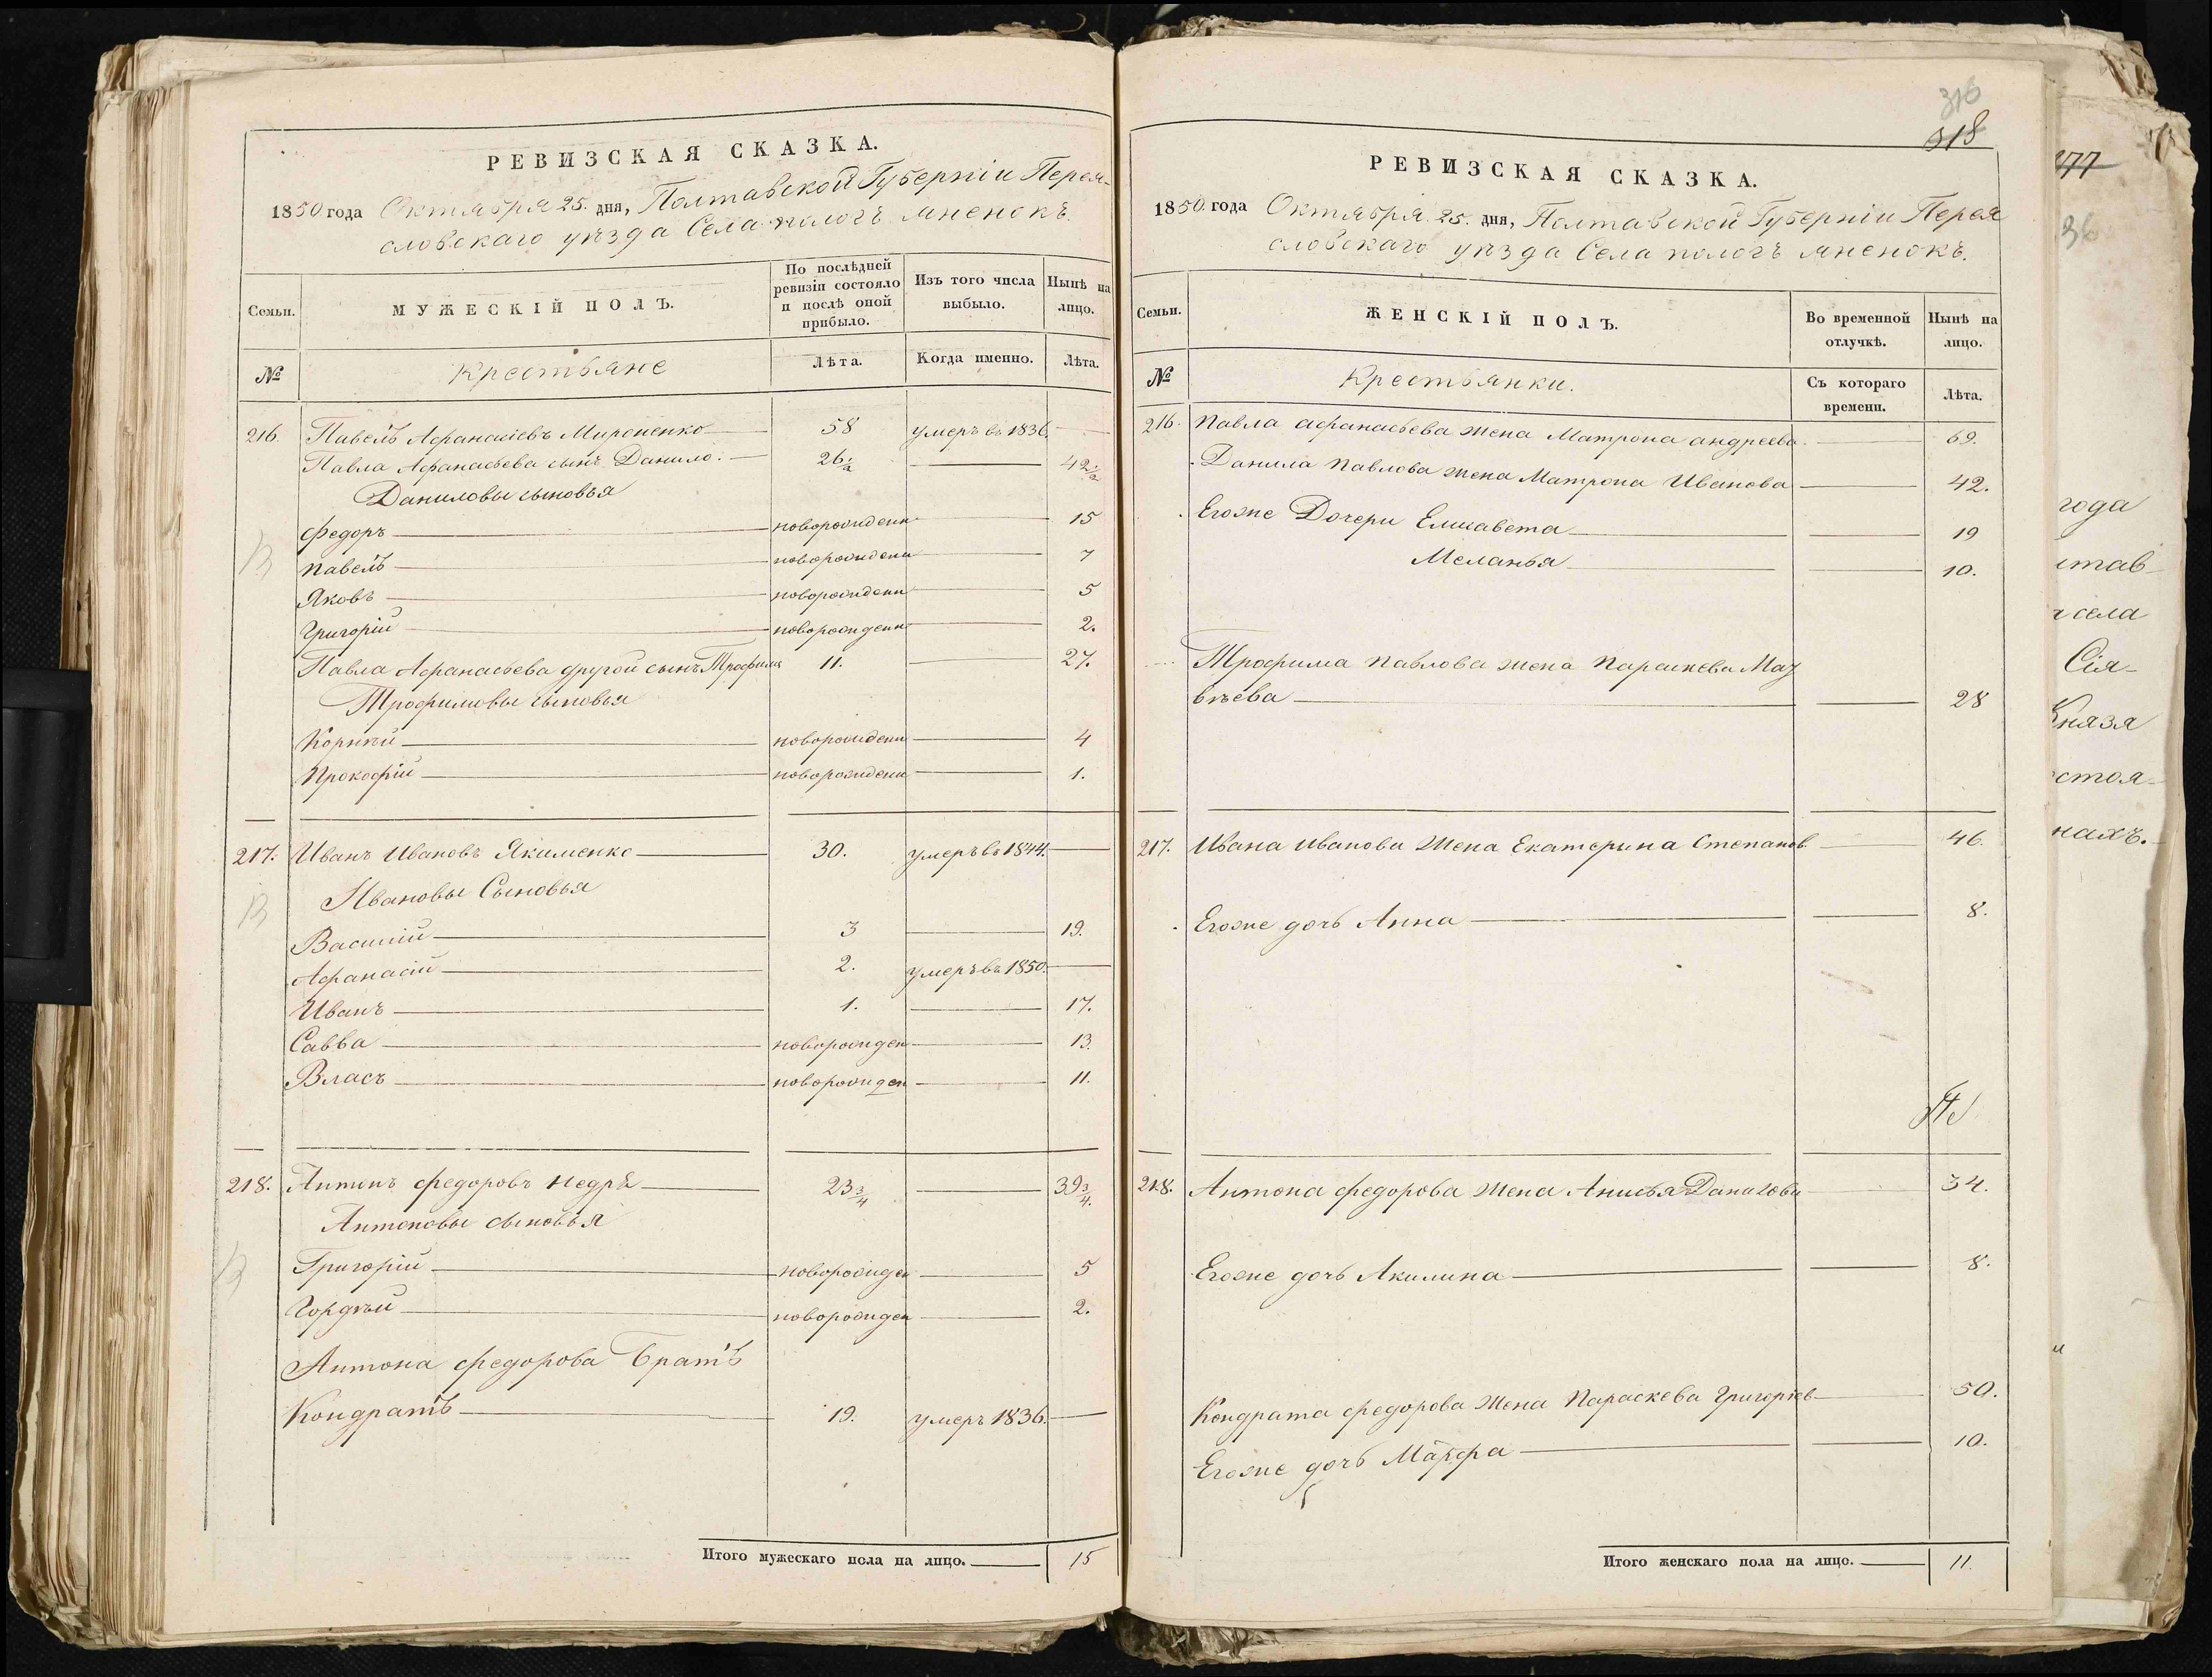 РЕВИЗСКАЯ СКАЗКА.
1850 года Октября 25. дня, Полтавской Губерніи Перея-
словскаго уѣзда Села пологъ яненокъ.
Семьи.
МУЖЕСКІЙ ПОЛЪ.
По послѣдней ревизіи состояло и послѣ оной прибыло.
Изъ того числа выбыло.
Нынѣ на лицо.
№
Крестьяне
Лѣта.
Когда именно.
Лѣта.
216. Павелъ Афанасіевъ Мироненко 58 умеръ въ 1836.
Павла Афанасьева сынъ Данило. 26 1/2 42 1/2
Даниловы сыновья
Федоръ новорожденн 15
Павелъ новорожденн 7
Яковъ новорожденн 5
Григорій новорожденн 2.
Павла Афанасьева другой сынъ Трофимъ 11. 27.
Трофимовы сыновья
Корнѣй новорожденн 4
Прокофій новорожденн 1.
217. Иванъ Ивановъ Якименко 30. умеръ въ 1844.
Ивановы Сыновья
Василій 3 19.
Афанасій 2. умеръ въ 1850.
Иванъ 1. 17.
Савва новорожден 13.
Власъ новорожден 11.
218. Антонъ Федоровъ Недря 23 3/4 39 3/4.
Антоновы сыновья
Григорій новорожден 5
Гордѣй новорожден 2.
Антона Федорова Братъ
Кондратъ 19. умеръ 1836.
Итого мужескаго пола на лицо. 15
316
318
РЕВИЗСКАЯ СКАЗКА.
1850. года Октября 25. дня, Полтавской Губерніи Перея
словскаго уѣзда Села пологъ яненокъ.
Семьи.
ЖЕНСКІЙ ПОЛЪ.
Во временной отлучкѣ.
Нынѣ на лицо.
№
Крестьянки.
Съ котораго времени.
Лѣта.
216. Павла Афанасьева жена Матрона андреева. 69.
Данила Павлова жена Матрона Иванова 42.
Егоже Дочери Елисавета 19
Меланья 10.
Трофима Павлова жена Параскева Мат
вѣева 28
217. Ивана Иванова Жена Екатерина Степанов 46.
Егоже дочь Анна 8.
218. Антона Федорова Жена Анисья Данилова 34.
Егоже дочь Акилина 8.
Кондрата Федорова Жена Параскева Григоріев 50.
Егоже дочь Марфа 10.
Итого женскаго пола на лицо. 11.
77
36
года
тав
села
Сія-
Князя
стоя-
нахъ.